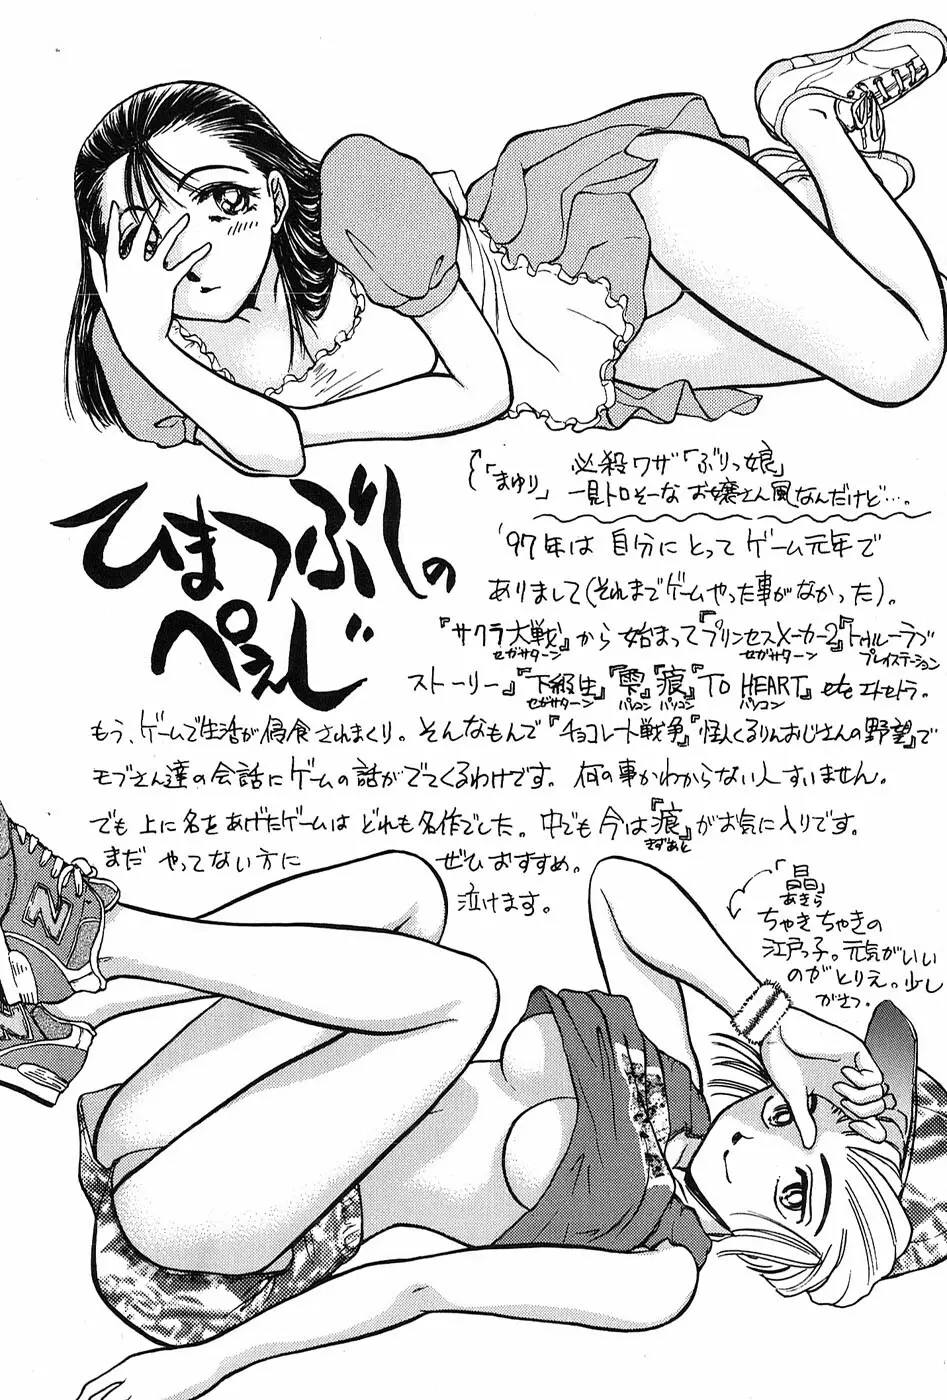 「まゆり」 必殺ワザ「ぶりっ娘」
一見トロそーなお嬢さん風なんだけど…。
ひまつぶしの
ぺぇじ
'97年は自分にとってゲーム元年で
ありまして(それまでゲームやった事がなかった)。
『サクラ大戦』から始まって『プリンセスメーカー2』『トゥルーラブ
セガサターン セガサターン プレイステーション
ストーリー』『下級生』『雫』『痕』『TO HEART』etc エトセトラ。
セガサターン パソコン パソコン パソコン
もう、ゲームで生活が侵食されまくり。そんなもんで『チョコレート戦争』『怪人くるりんおじさんの野望』で
モブさん達の会話にゲームの話がでてくるわけです。何の事かわからない人すいません。
でも上に名をあげたゲームはどれも名作でした。中でも今は『痕』がお気に入りです。
きずあと
まだやってない方に ぜひおすすめ。
泣けます。
「晶」
あきら
ちゃきちゃきの
江戸っ子。元気がいい
のがとりえ。少し
がさつ。
N
N